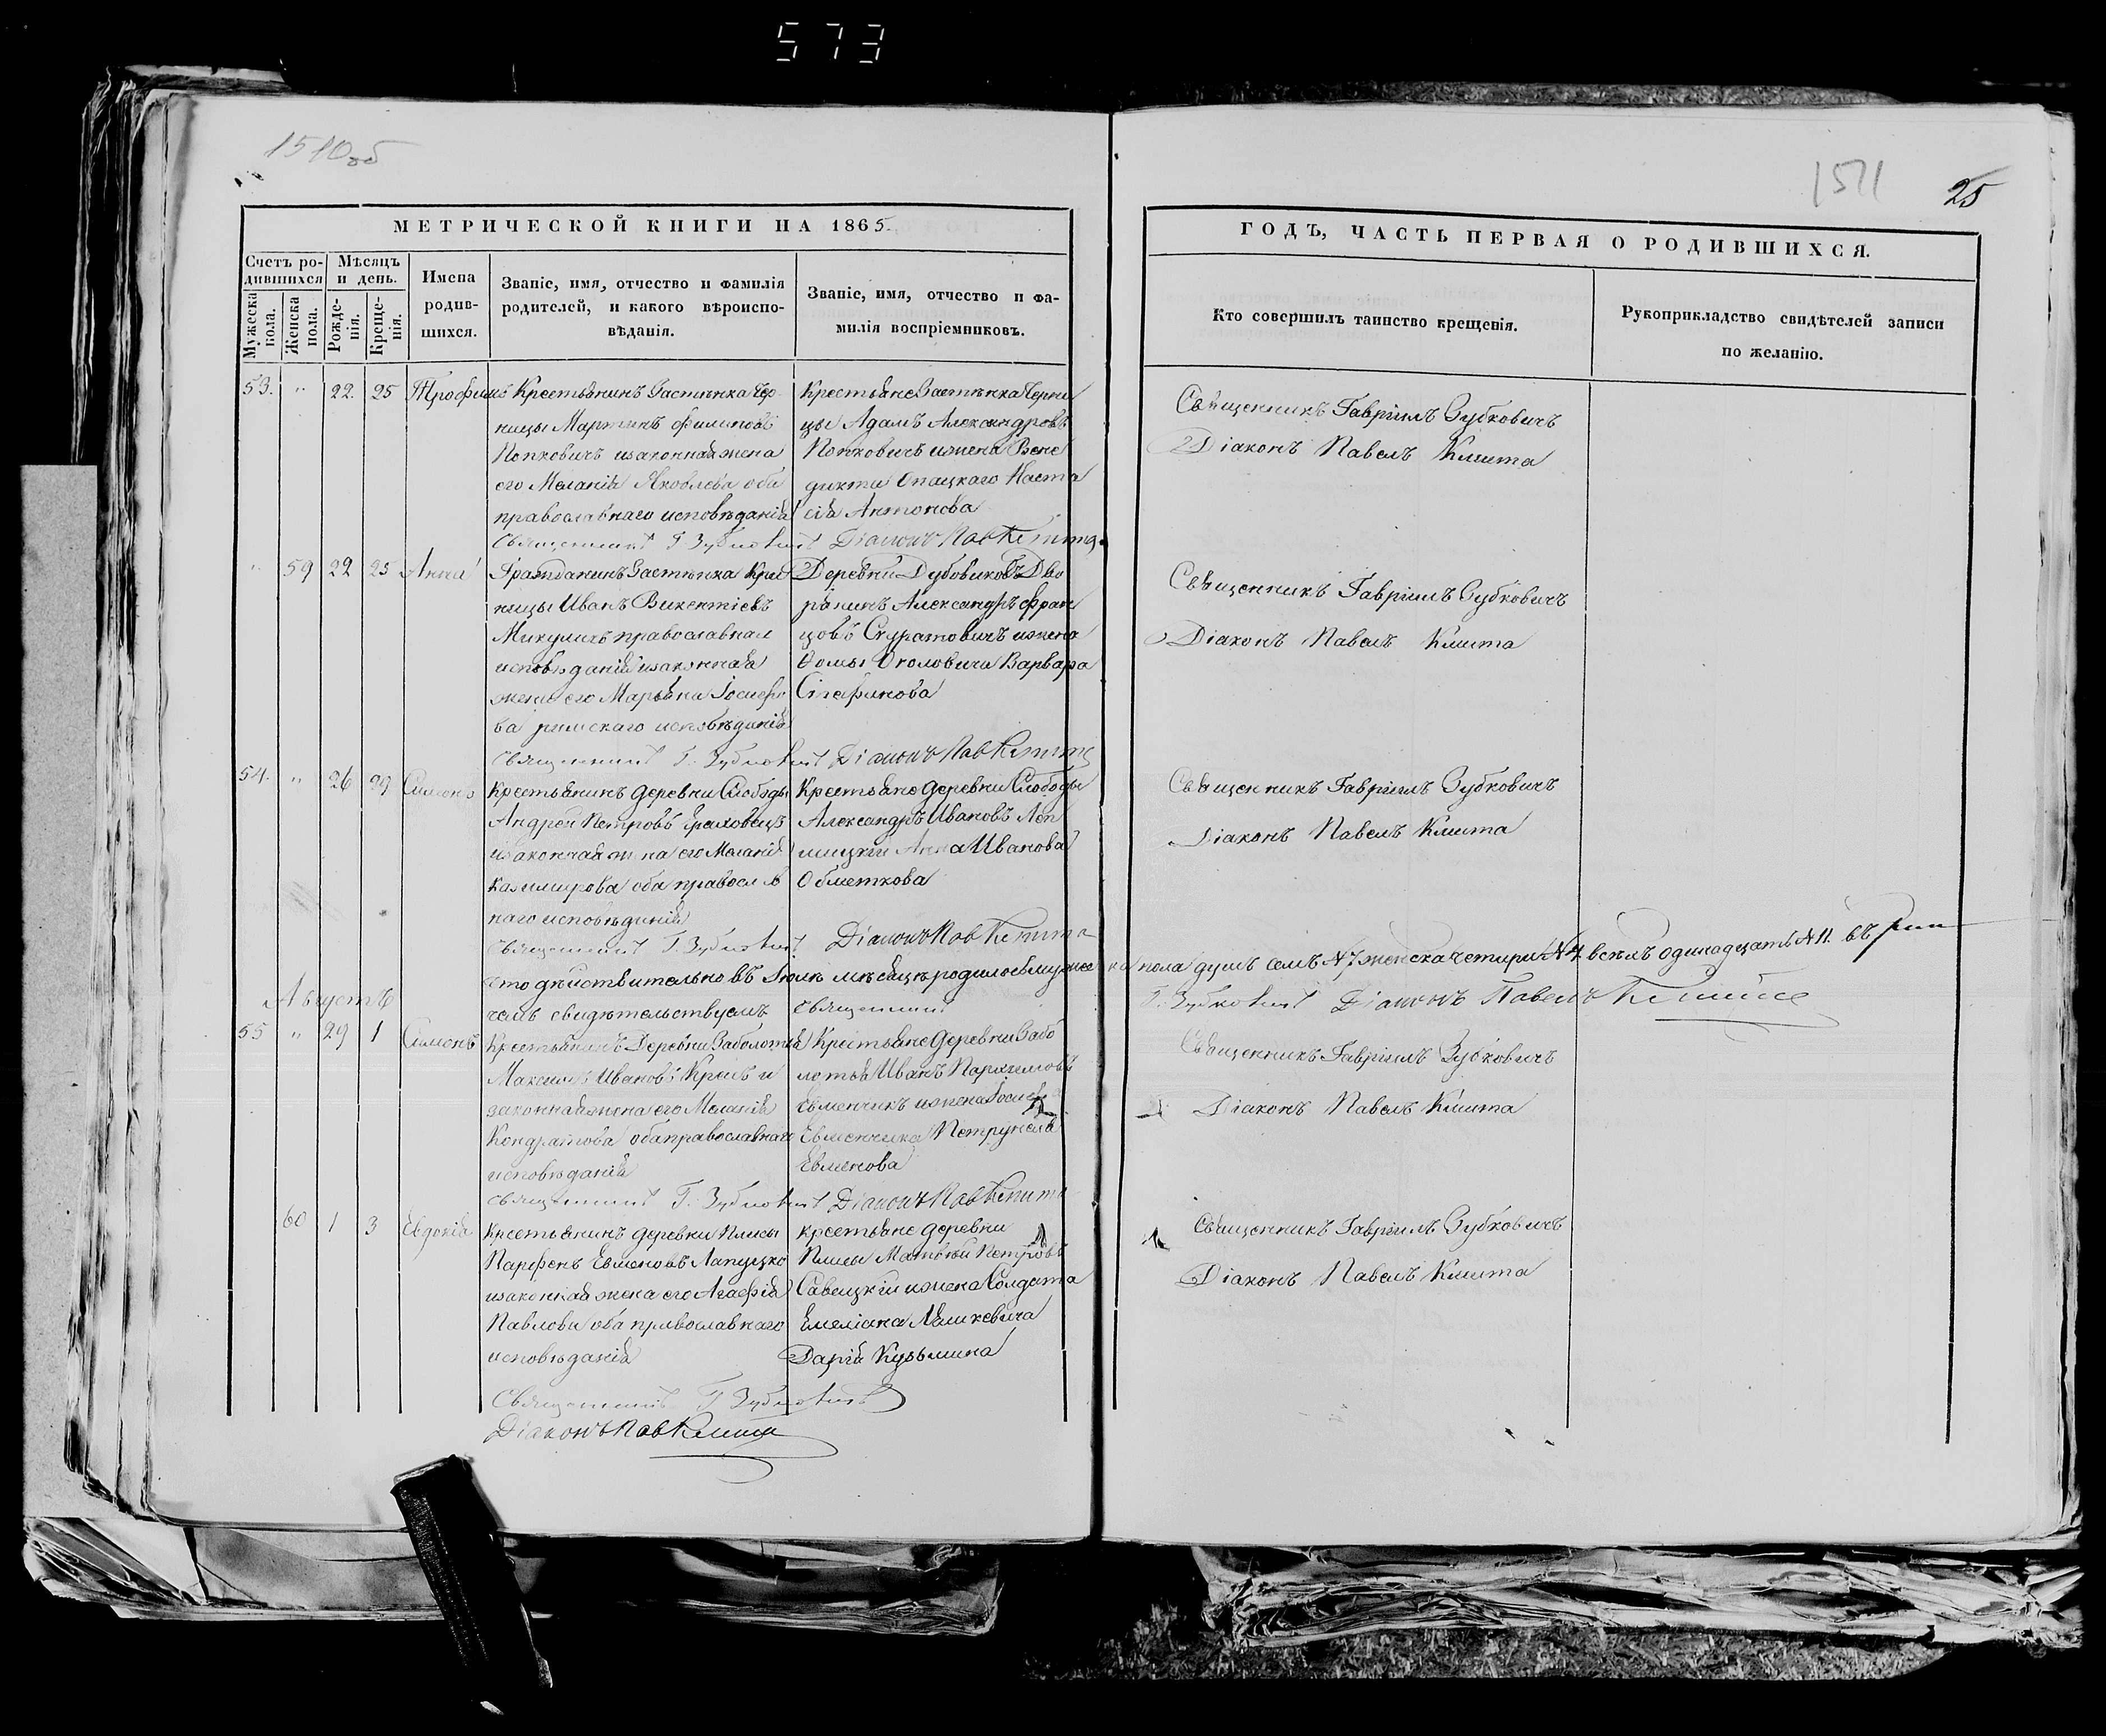 573
1510об
1511
25
МЕТРИЧЕСКОЙ КНИГИ НА 1865.
ГОДЪ, ЧАСТЬ ПЕРВАЯ О РОДИВШИХСЯ.
Счетъ ро-
дившихся
Мѣсяцъ
и день.
Мужеска
пола.
Женска
пола.
Рожде-
нія.
Креще-
нія.
Имена
родив-
шихся.
Званіе, имя, отчество и фамилія
родителей, и какого вѣроиспо-
вѣданія.
Званіе, имя, отчество и фа-
милія воспріемниковъ.
Кто совершилъ таинство крещенія.
Рукоприкладство свидѣтелей записи
по желанію.
53. " 22. 25 Трофимъ
Крестьянинъ Застѣнка Чер
ницы Мартинъ Филиповъ
Попковичъ изаконная жена
его Меланія Яковлева оба
православнаго исповѣданія
Крестьяне Застѣнка Черни
цы Адамъ Александровъ
Попковичъ ижена Вене
дикта Опацкаго Наста
сія Антонова
Священникъ Г Зубковичъ Діаконъ Пав Кмита
Священникъ Гавріилъ Зубковичъ
Діаконъ Павелъ Кмита
" 59 22 25 Анна
Гражданинъ Застѣнка
ницы Иванъ Викентіевъ
Микуличъ православнаго
исповѣданія изаконная
жена его Маріанна Іосифо
ва римскаго исповѣданія
Деревни Дубовиковъ Дво
рянинъ Александръ Фран
цовъ Скуратовичъ ижена
Фомы Околовича Варвара
Стефанова
Священникъ Г. Зубковичъ Діаконъ Пав Кмита
Священникъ Гавріилъ Зубковичъ
Діаконъ Павелъ Кмита
54. " 26 29 Симонъ
Крестьянинъ деревни Слободы
Андрей Петровъ
изаконная жена его Меланія
Казимирова оба православ
наго исповѣданія
Крестьяне деревни Слободы
Александръ Ивановъ
Анна Иванова
Обметкова
Священникъ Г. Зубковичъ Діаконъ Пав Кмита
Священникъ Гавріилъ Зубковичъ
Діаконъ Павелъ Кмита
Что дѣйствительно въ Іюлѣ мѣсяцѣ родилось мужеска пола душъ семь №7 женска четыри №4 всѣхъ одинадцать №11. въ
чемъ свидѣтельствуемъ Священникъ Г. Зубковичъ Діаконъ Павелъ Кмита
Августъ
55 " 29 1 Симонъ
Крестьянинъ Деревни Заболотья
Максимъ Ивановъ Крень и
законная жена его Меланія
Кондратова оба православнаго
исповѣданія
Крестьяне деревни Забо
лотья Иванъ Пархимовъ
Евменчикъ ижена
Евменчика Петрунеля
Евменова
Священникъ Г. Зубковичъ Діаконъ Пав Кмита
Священникъ Гавріилъ Зубковичъ
Діаконъ Павелъ Кмита
60 1 3 Евдокія
Крестьянинъ деревни Плисы
Парфенъ Евменовъ Лапуцко
изаконная жена его Агафія
Павлова оба православнаго
исповѣданія
крестьяне деревни
Плисы Матвѣй Петровъ
Савицкій ижена Солдата
Емеліана
Дарія Кузьмина
Священникъ Г Зубковичъ
Діаконъ Пав Кмита
Священникъ Гавріилъ Зубковичъ
Діаконъ Павелъ Кмита